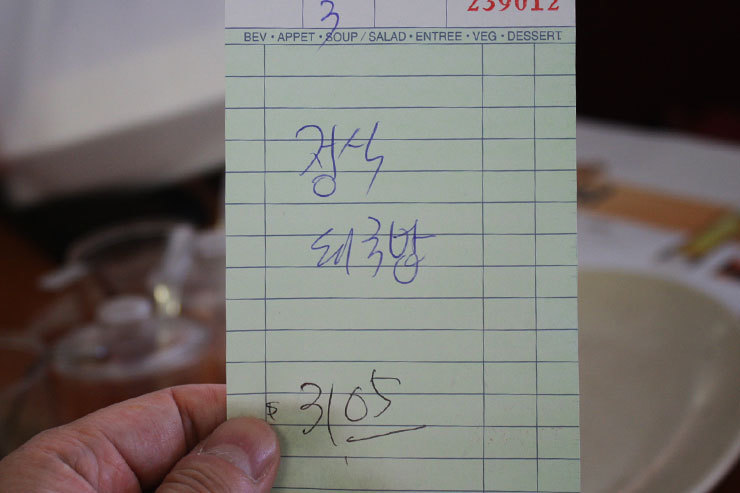 3 239012
BEV • APPET • SOUP / SALAD • ENTREE • VEG • DESSERT
정식
돼국밥
$ 31 05